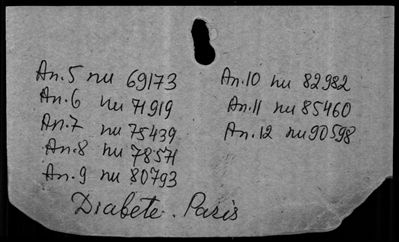 An.5 nu 69173
An.6 nu 71919
An.7 nu 75439
An.8 nu 78571
An.9 nu 80793
An.10 nu 82982
An.11 nu 85460
An.12 nu 90598
Diabete. Paris